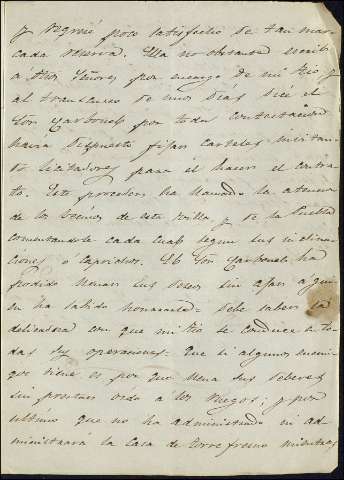 y regresé poco satisfecho de tan mar-
cada reserva. Ella no obstante escribí
a dhos Señores por encargo de mi tio y
al transcurso de unos dias vió el
Sor Carbonell por toda contestacion
havia dispuesto fijar carteles invitan-
do licitadores para él hacer el contra-
to. Este proceder ha llamado la atencion
de los vecinos de esta villa y de la Puebla
comentandole cada cual segun sus inclina-
ciones ó caprichos. El Sor Carbonell ha
podido llenar sus deseos sin ajar á quien
le ha salido honrando. debe saber la
delicadeza con que mi tio se conduce en to-
das sus operaciones. Que si algunos enemi-
gos tiene es por que llena sus deberes
sin prestar oido a los ruegos; y por
ultimo que no ha administrado ni ad-
ministrará la Casa de Torrefresno mientras